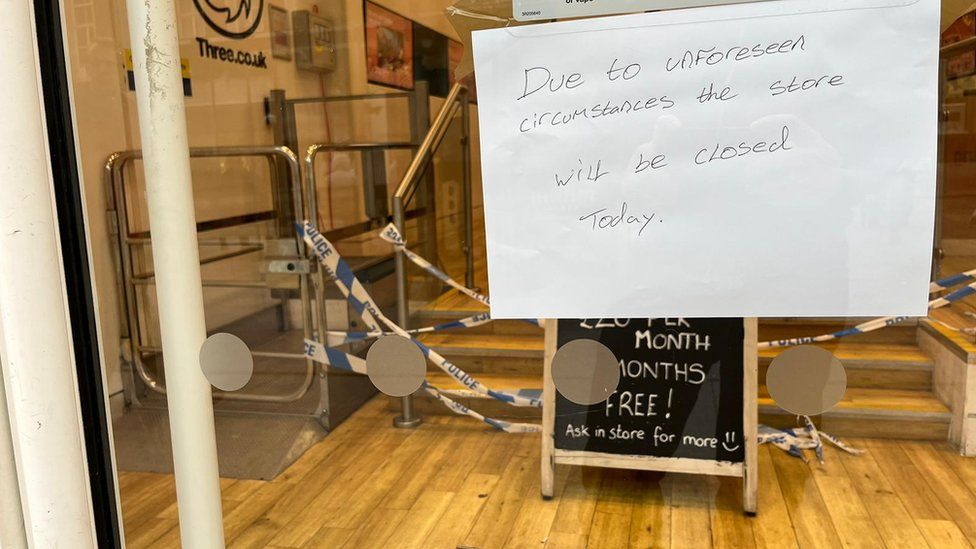 3R205640
or vape
Three.co.uk
Due to unforeseen
circumstances the store
will be closed
Today.
POLICE
POLICE
POLICE
£20 PER
MONTH
MONTHS
FREE!
Ask in store for more